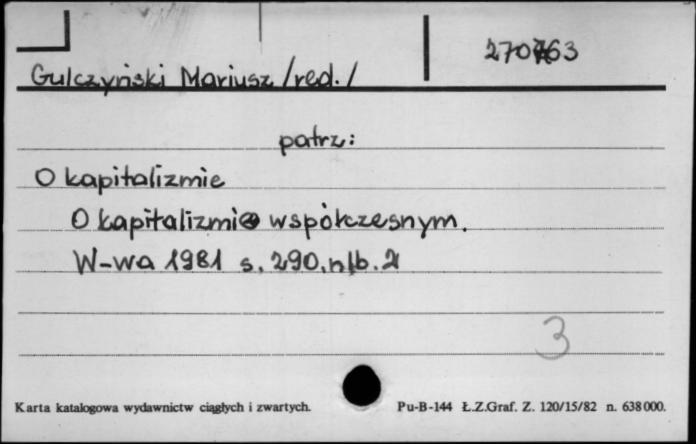 Gulczyński Mariusz /red./
patrz:
O kapitalizmie
O kapitalizmie współczesnym.
W-wa 1981 s. 290, nlb. 2
3
Karta katalogowa wydawnictw ciągłych i zwartych.
Pu-B-144 Ł.Z.Graf. Z. 120/15/82 n. 638000.